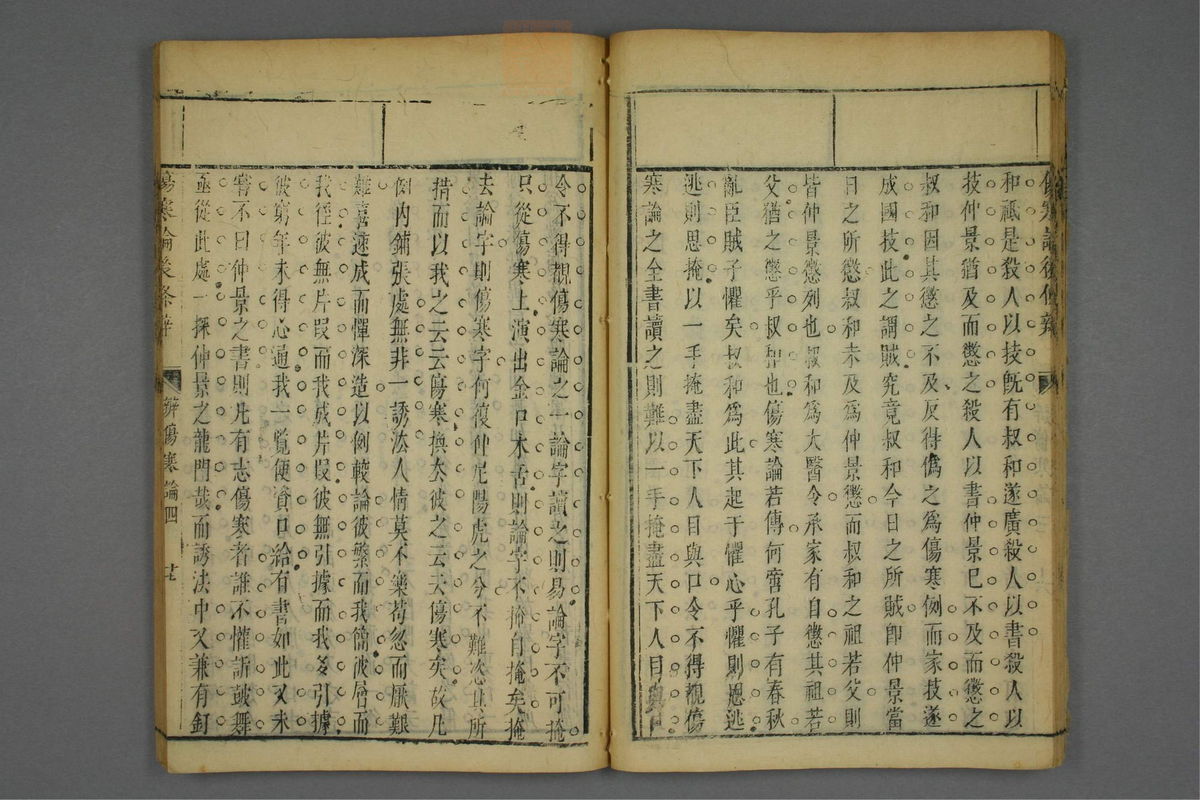 傷寒論後條辨
和祇是殺人以技旣有叔和遂廣殺人以書殺人以
技仲景猶及而懲之殺人以書仲景已不及而懲之
叔和因其懲之不及反得僞之爲傷寒例而家技遂
成國技此之謂賊究竟叔和今日之所賊卽仲景當
日之所懲叔和未及爲仲景懲而叔和之祖若父則
皆仲景懲列也叔和爲太醫令承家有自懲其祖若
父猶之懲乎叔和也傷寒論若傳何啻孔子有春秋
亂臣賊子懼矣叔和爲此其起于懼心乎懼則思逃
逃則思掩以一手掩盡天下人目與口令不得覩傷
寒論之全書讀之則難以一手掩盡天下人目與口
令不得覩傷寒論之一論字讀之則易論字不可掩
只從傷寒上演出金口木舌則論字不掩自掩矣掩
去論字則傷寒字何復仲尼陽虎之分不難恣其所
措而以我之云云傷寒換欠彼之云云傷寒矣故凡
例内鋪張處無非一誘法人情莫不樂苟忽而厭艱
難喜速成而憚深造以例較論彼繁而我簡彼層而
我徑彼無片段而我成片段彼無引據而我多引據
彼窮年未得心通我一覽便資口給有書如此又未
嘗不曰仲景之書則凡有志傷寒者誰不懽訢鼓舞
亟從此處一探仲景之龍門哉而誘法中又兼有釘
傷寒論後條辨
辨傷寒論四